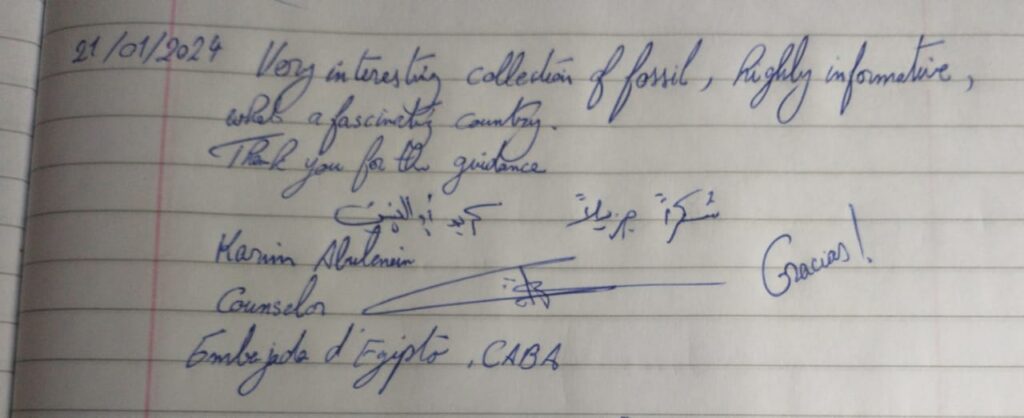 21/01/2024 Very interesting collection of fossil, highly informative,
what a fascinating country.
Thank you for the guidance
شكراً جزيلاً كريم أبو العينين
Karim Abulenein
Counselor
Gracias!
Embajada d'Egipto, CABA